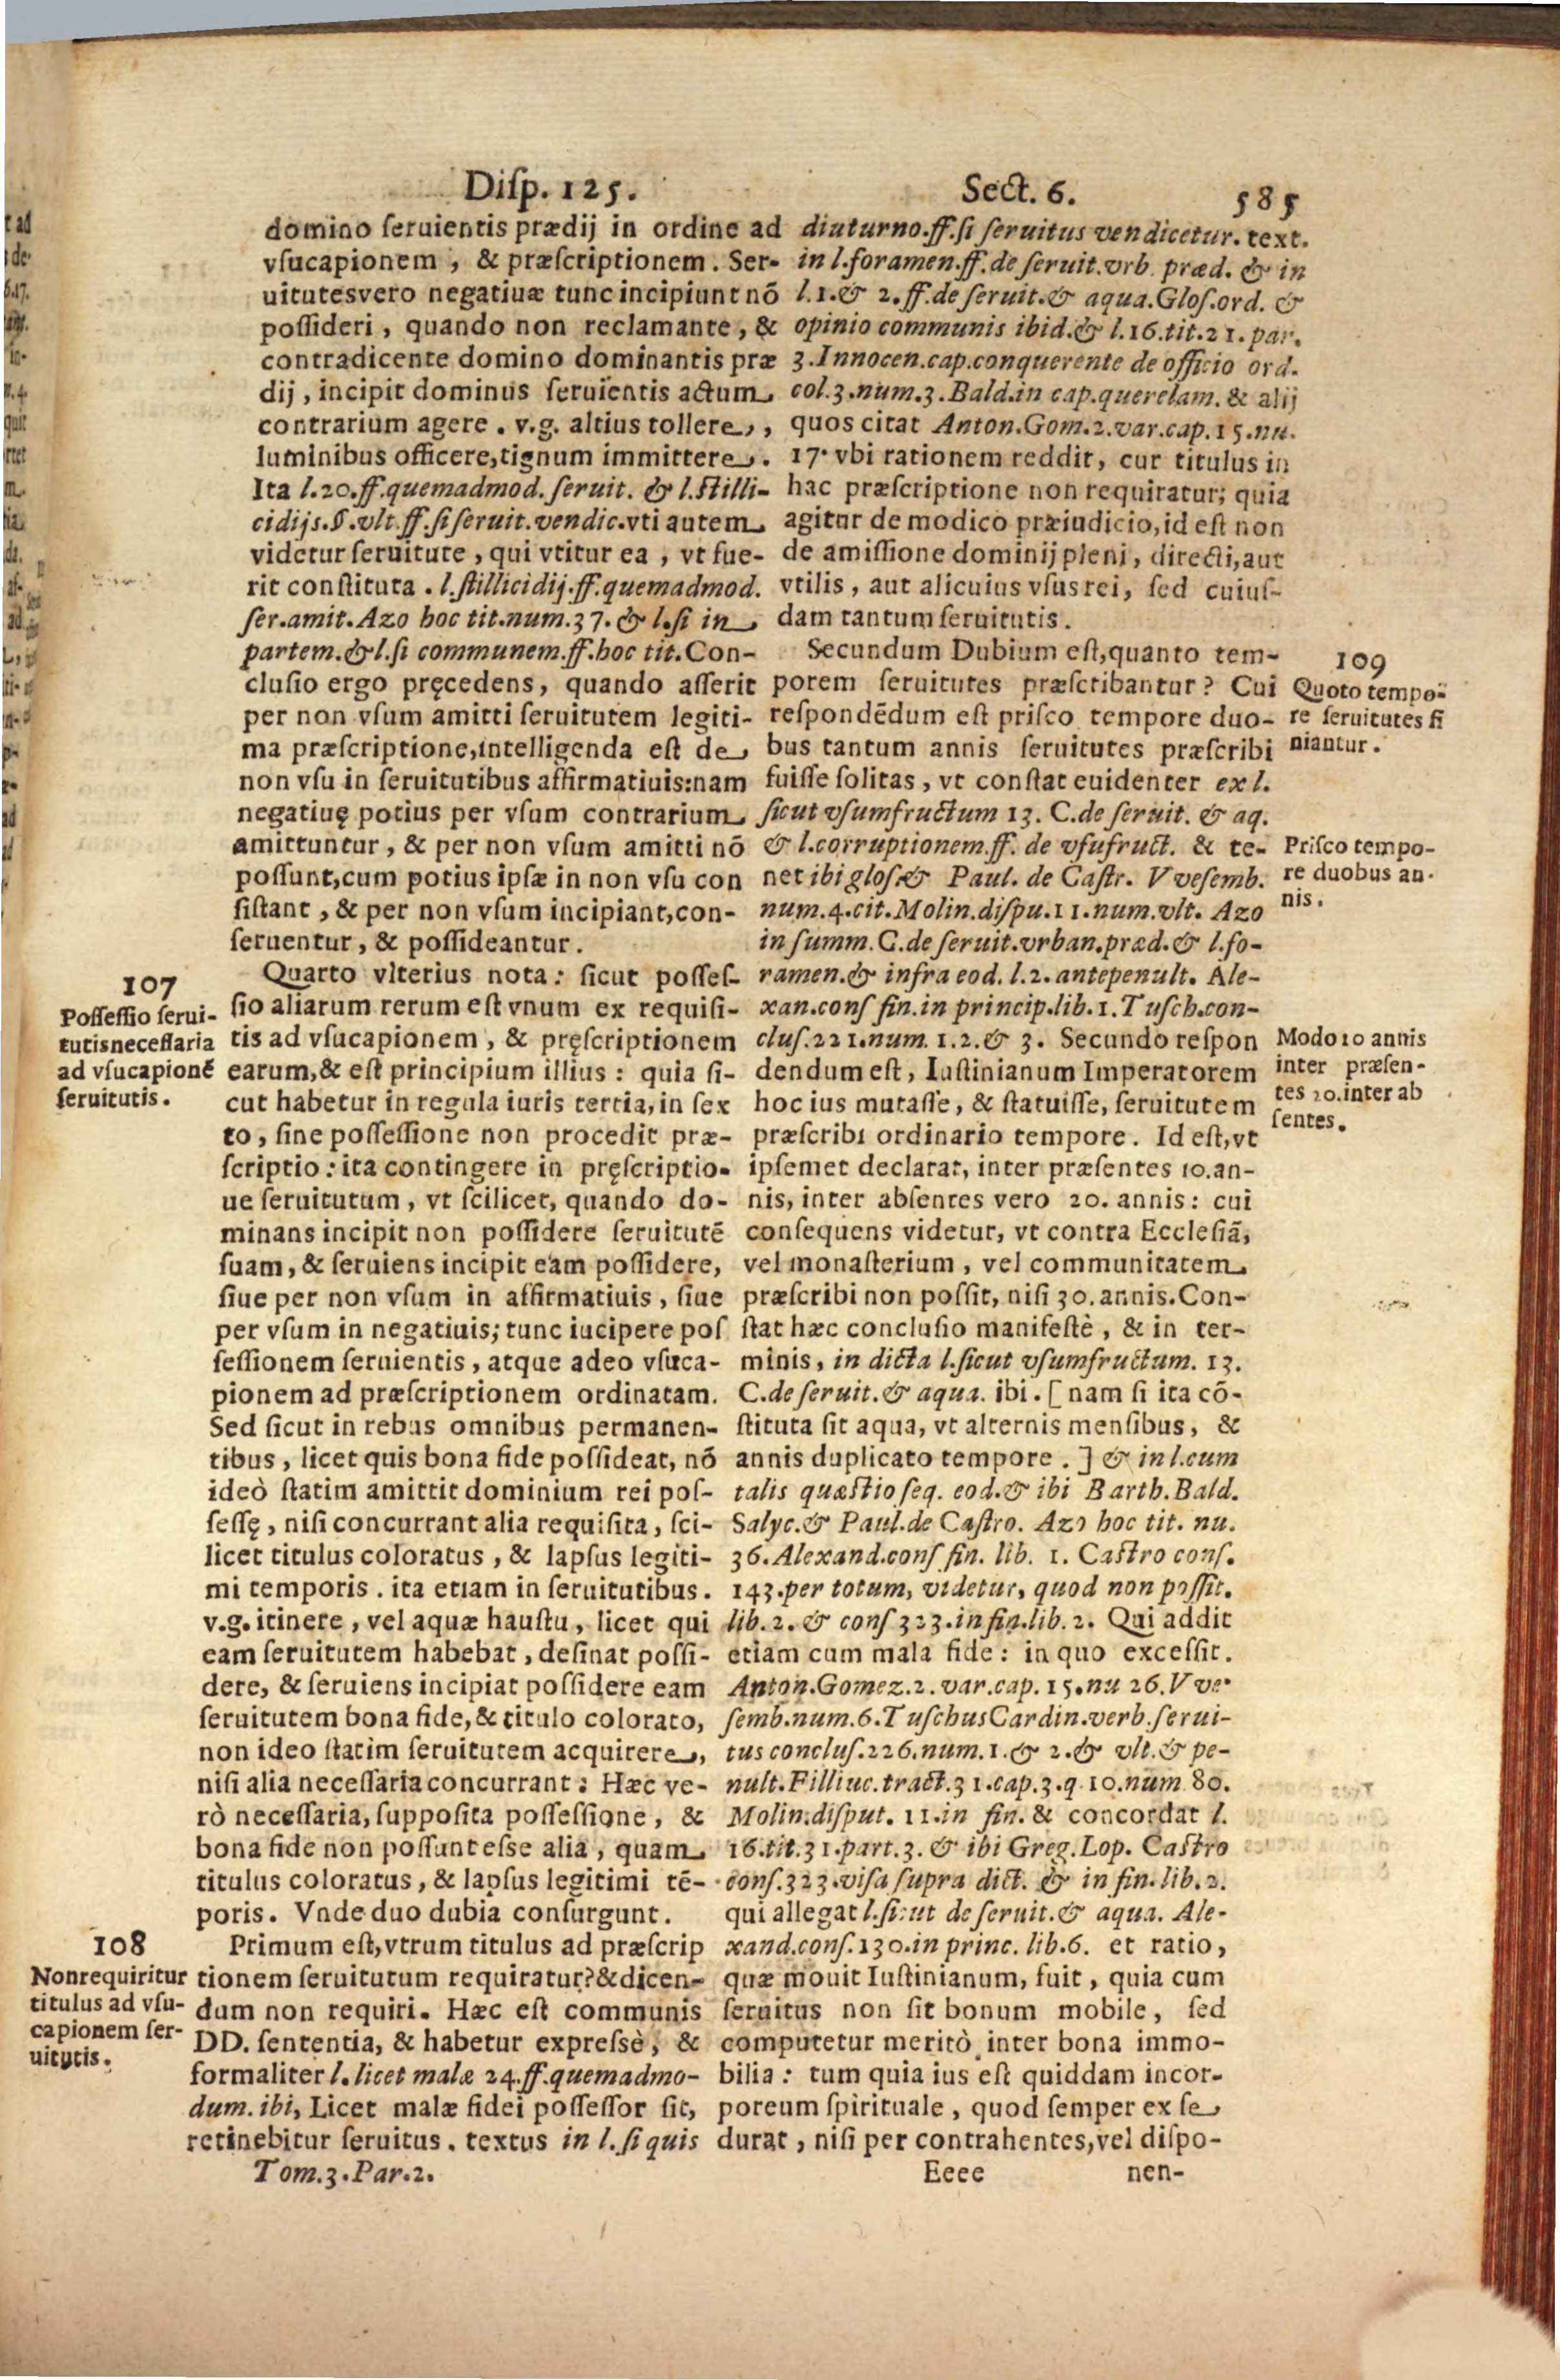 Diſp. 125. Sect. 6. 585
domino ſeruientis prædij in ordine ad
vſucapionem, & præſcriptionem. Ser-
uitutesvero negatiuæ tunc incipiunt nō
poſſideri, quando non reclamante, &
contradicente domino dominantis præ
dij, incipit dominus ſeruientis actum
contrarium agere. v.g. altius tollere,
luminibus officere,tignum immittere.
Ita l.20.ff.quemadmod. ſeruit. & l.ſtilli-
cidijs.§.vlt.ff.ſi ſeruit.vendic.vti autem
videtur ſeruitute, qui vtitur ea, vt fue-
rit conſtituta. l.ſtillicidij.ff.quemadmod.
ſer.amit.Azo hoc tit.num.37.& l.ſi in
partem.&l.ſi communem.ff.hoc tit.Con-
cluſio ergo pręcedens, quando aſſerit
per non vſum amitti ſeruitutem legiti-
ma præſcriptione,intelligenda eſt de
non vſu in ſeruitutibus affirmatiuis:nam
negatiuę potius per vſum contrarium
amittuntur, & per non vſum amitti nō
poſſunt,cum potius ipſæ in non vſu con
ſiſtant, & per non vſum incipiant,con-
ſeruentur, & poſſideantur.
107
Poſſeſſio ſerui-
tutisneceſſaria
ad vſucapionē
ſeruitutis.
Quarto vlterius nota: ſicut poſſeſ-
ſio aliarum rerum eſt vnum ex requiſi-
tis ad vſucapionem, & pręſcriptionem
earum,& eſt principium illius: quia ſi-
cut habetur in regula iuris tertia,in ſex
to, ſine poſſeſſione non procedit præ-
ſcriptio: ita contingere in pręſcriptio-
ue ſeruitutum, vt ſcilicet, quando do-
minans incipit non poſſidere ſeruitutē
ſuam, & ſeruiens incipit eam poſſidere,
ſiue per non vſum in affirmatiuis, ſiue
per vſum in negatiuis; tunc iucipere poſ
ſeſſionem ſeruientis, atque adeo vſuca-
pionem ad præſcriptionem ordinatam.
Sed ſicut in rebus omnibus permanen-
tibus, licet quis bona fide poſſideat, nō
ideò ſtatim amittit dominium rei poſ-
ſeſſę, niſi concurrant alia requiſita, ſci-
licet titulus coloratus, & lapſus legiti-
mi temporis. ita etiam in ſeruitutibus.
v.g. itinere, vel aquæ hauſtu, licet qui
eam ſeruitutem habebat, deſinat poſſi-
dere, & ſeruiens incipiat poſſidere eam
ſeruitutem bona fide,& titulo colorato,
non ideo ſtatim ſeruitutem acquirere,
niſi alia neceſſaria concurrant: Hæc ve-
rò neceſſaria, ſuppoſita poſſeſſione, &
bona fide non poſſunt eſse alia, quam
titulus coloratus, & lapſus legitimi tē-
poris. Vnde duo dubia conſurgunt.
108
Nonrequiritur
titulus ad vſu-
capionem ſer-
uitutis.
Primum eſt,vtrum titulus ad præſcrip
tionem ſeruitutum requiratur?&dicen-
dum non requiri. Hæc eſt communis
DD. ſententia, & habetur expreſsè, &
formaliter l.licet malæ 24.ff.quemadmo-
dum. ibi, Licet malæ fidei poſſeſſor ſit,
retinebitur ſeruitus. textus in l.ſi quis
Tom.3.Par.2.
diuturno.ff.ſi ſeruitus vendicetur. text.
in l.foramen.ff.de ſeruit.vrb. præd. & in
l.1.& 2.ff.de ſeruit.& aqua.Gloſ.ord. &
opinio communis ibid.& l.16.tit.21.par.
3.Innocen.cap.conquerente de officio ord.
col.3.num.3.Bald.in cap.querelam. & alij
quos citat Anton.Gom.2.var.cap.15.nu.
17. vbi rationem reddit, cur titulus in
hac præſcriptione non requiratur; quia
agitur de modico præiudicio,id eſt non
de amiſſione dominij pleni, directi,aut
vtilis, aut alicuius vſus rei, ſed cuiuſ-
dam tantum ſeruitutis.
109
Quoto tempo-
re ſeruitutes fi
niantur.
Secundum Dubium eſt,quanto tem-
porem ſeruitutes præſcribantur? Cui
reſpondēdum eſt priſco tempore duo-
bus tantum annis ſeruitutes præſcribi
fuiſſe ſolitas, vt conſtat euidenter ex l.
ſicut vſumfructum 13. C.de ſeruit. & aq.
Priſco tempo-
re duobus an-
nis.
& l.corruptionem.ff. de vſufruct. & te-
net ibi gloſ.& Paul. de Caſtr. Vveſemb.
num.4.cit.Molin.diſpu.11.num.vlt. Azo
in ſumm.C.de ſeruit.vrban.præd.& l.fo-
ramen.& infra eod. l.2.antepenult. Ale-
xan.conſ fin.in princip.lib.1.Tuſch.con-
cluſ.221.num. 1.2.& 3. Secundo reſpon
Modo 10 annis
inter præſen-
tes 20.inter ab
ſentes.
dendum eſt, Iuſtinianum Imperatorem
hoc ius mutaſſe, & ſtatuiſſe, ſeruitutem
præſcribi ordinario tempore. Id eſt,vt
ipſemet declarat, inter præſentes 10.an-
nis, inter abſentes vero 20. annis: cui
conſequens videtur, vt contra Eccleſiā,
vel monaſterium, vel communitatem
præſcribi non poſſit, niſi 30.annis.Con-
ſtat hæc concluſio manifeſtè, & in ter-
minis, in dicta l.ſicut vſumfructum. 13.
C.de ſeruit.& aqua. ibi. [ nam ſi ita cō-
ſtituta ſit aqua, vt alternis menſibus, &
annis duplicato tempore. ] & in l.cum
talis quæſtio ſeq. eod.& ibi Barth.Bald.
Salyc.& Paul.de Caſtro. Azo hoc tit. nu.
36.Alexand.conſ fin. lib. 1. Caſtro conſ.
143.per totum, videtur, quod non poſſit.
lib.2. & conſ 323.in fin.lib.2. Qui addit
etiam cum mala fide: in quo exceſſit.
Anton.Gomez.2.var.cap. 15.nu 26.Vve-
ſemb.num.6.TuſchusCardin.verb.ſerui-
tus concluſ.226.num.1.& 2.& vlt.& pe-
nult.Filliuc.tract.31.cap.3.q 10.num 80.
Molin.diſput. 11.in fin. & concordat l.
16.tit.31.part.3. & ibi Greg.Lop. Caſtro
conſ.323.viſa ſupra dict. & in fin.lib.2.
qui allegat l.ſicut de ſeruit.& aqua. Ale-
xand.conſ.130.in princ. lib.6. et ratio,
quæ mouit Iuſtinianum, fuit, quia cum
ſeruitus non ſit bonum mobile, ſed
computetur meritò inter bona immo-
bilia: tum quia ius eſt quiddam incor-
poreum ſpirituale, quod ſemper ex ſe
durat, niſi per contrahentes,vel diſpo-
Eeee nen-